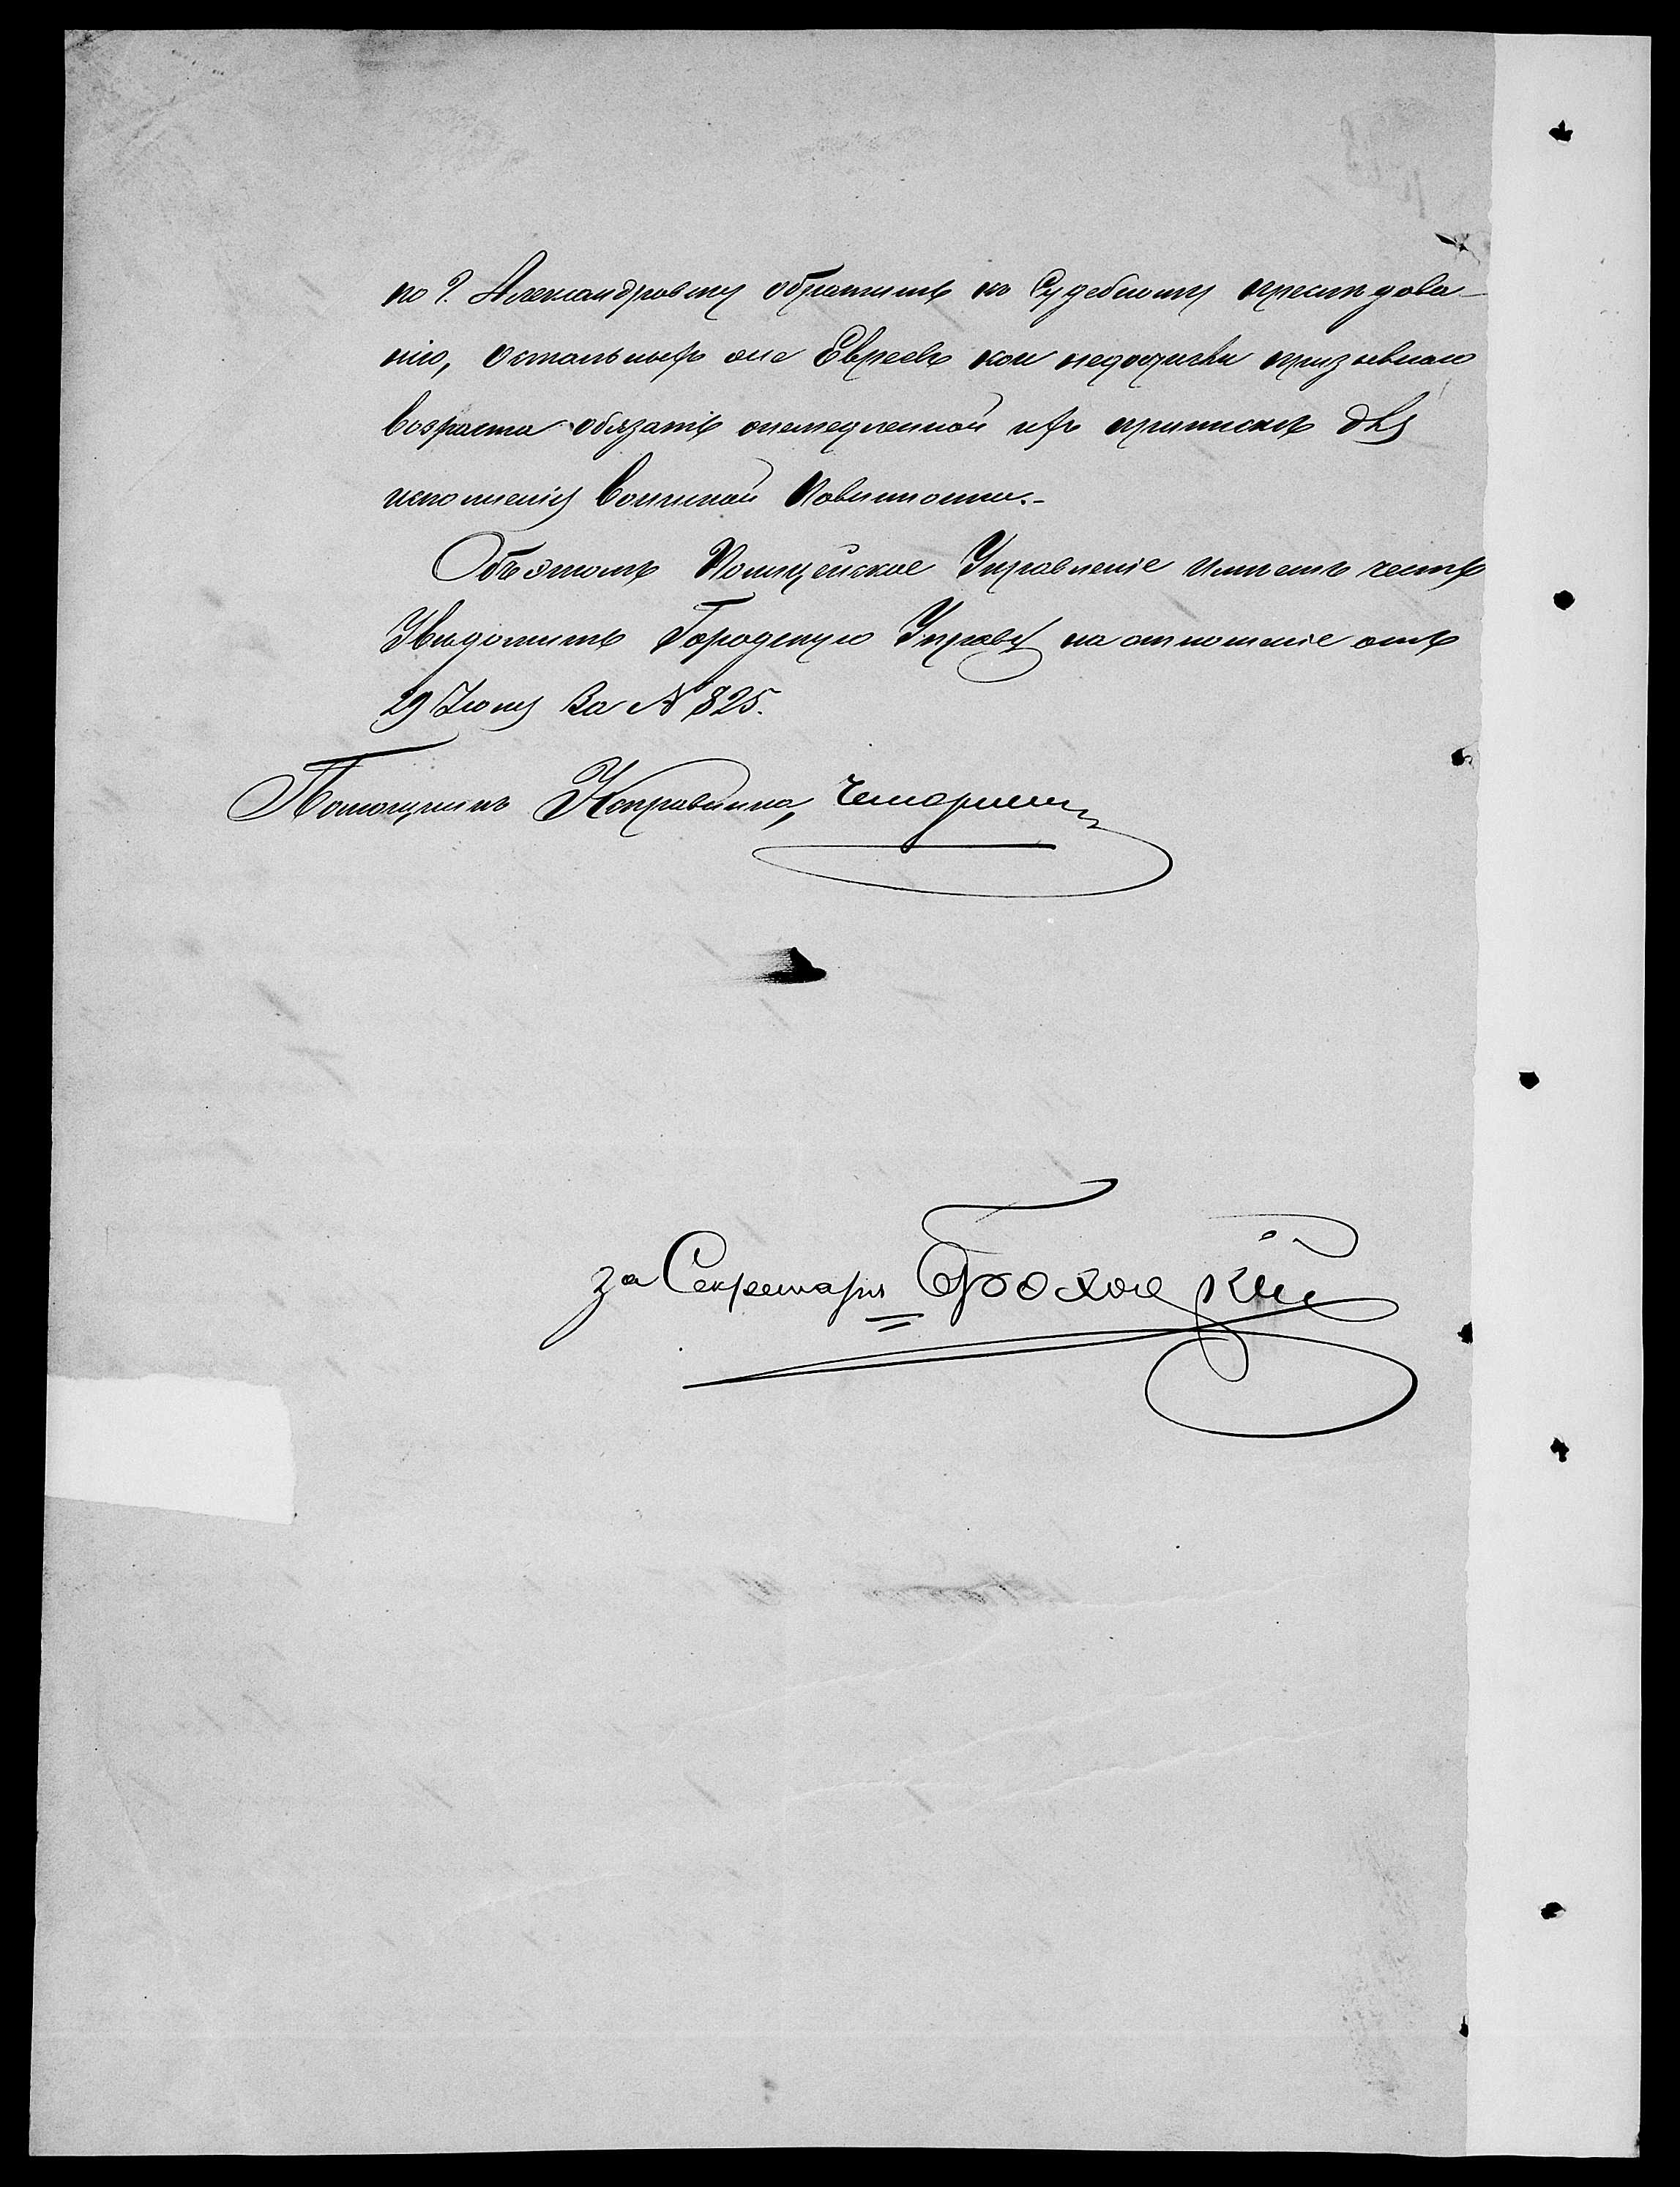 по г. Александровску обратить къ Судебному преслѣдова-
нію, остальныхъ же Евреевъ кои недостигли призывнаго
возраста обязать немедленной ихъ припиской для
исполненія воинской Повинности.-
Объ этомъ Полицейское Управленіе имѣетъ честь
Увѣдомить Городскую Управу на отношеніе отъ
29 Іюня За № 825.
Помощникъ Исправника,
за Секретаря